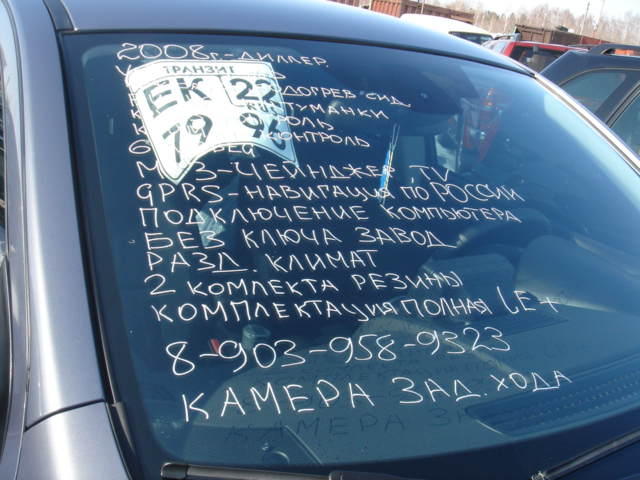 2008г.-ДИЛЛЕР.
ТРАНЗИТ
ЕК 22
79 96
ПОДОГРЕВ СИД.
ТУМАНКИ
КОНТРОЛЬ
MP3-ЧЕЙНДЖЕР TV
GPRS-НАВИГАЦИЯ ПО РОССИИ
ПОДКЛЮЧЕНИЕ КОМПЮТЕРА
БЕЗ КЛЮЧА ЗАВОД
РАЗД. КЛИМАТ
2 КОМПЛЕКТА РЕЗИНЫ
КОМПЛЕКТАЦИЯ ПОЛНАЯ LE+
8-903-958-9323
КАМЕРА ЗАД. ХОДА